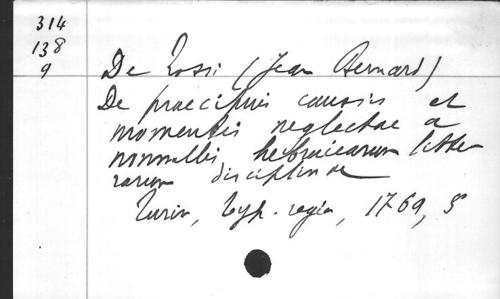 314
138
9
De Rossi (Jean Bernard)
De praecipuis causis et
momentis neglectae a
nonnullis hebraicarum litte
rarum disciplinae
Turin, typ. regia, 1769, 8